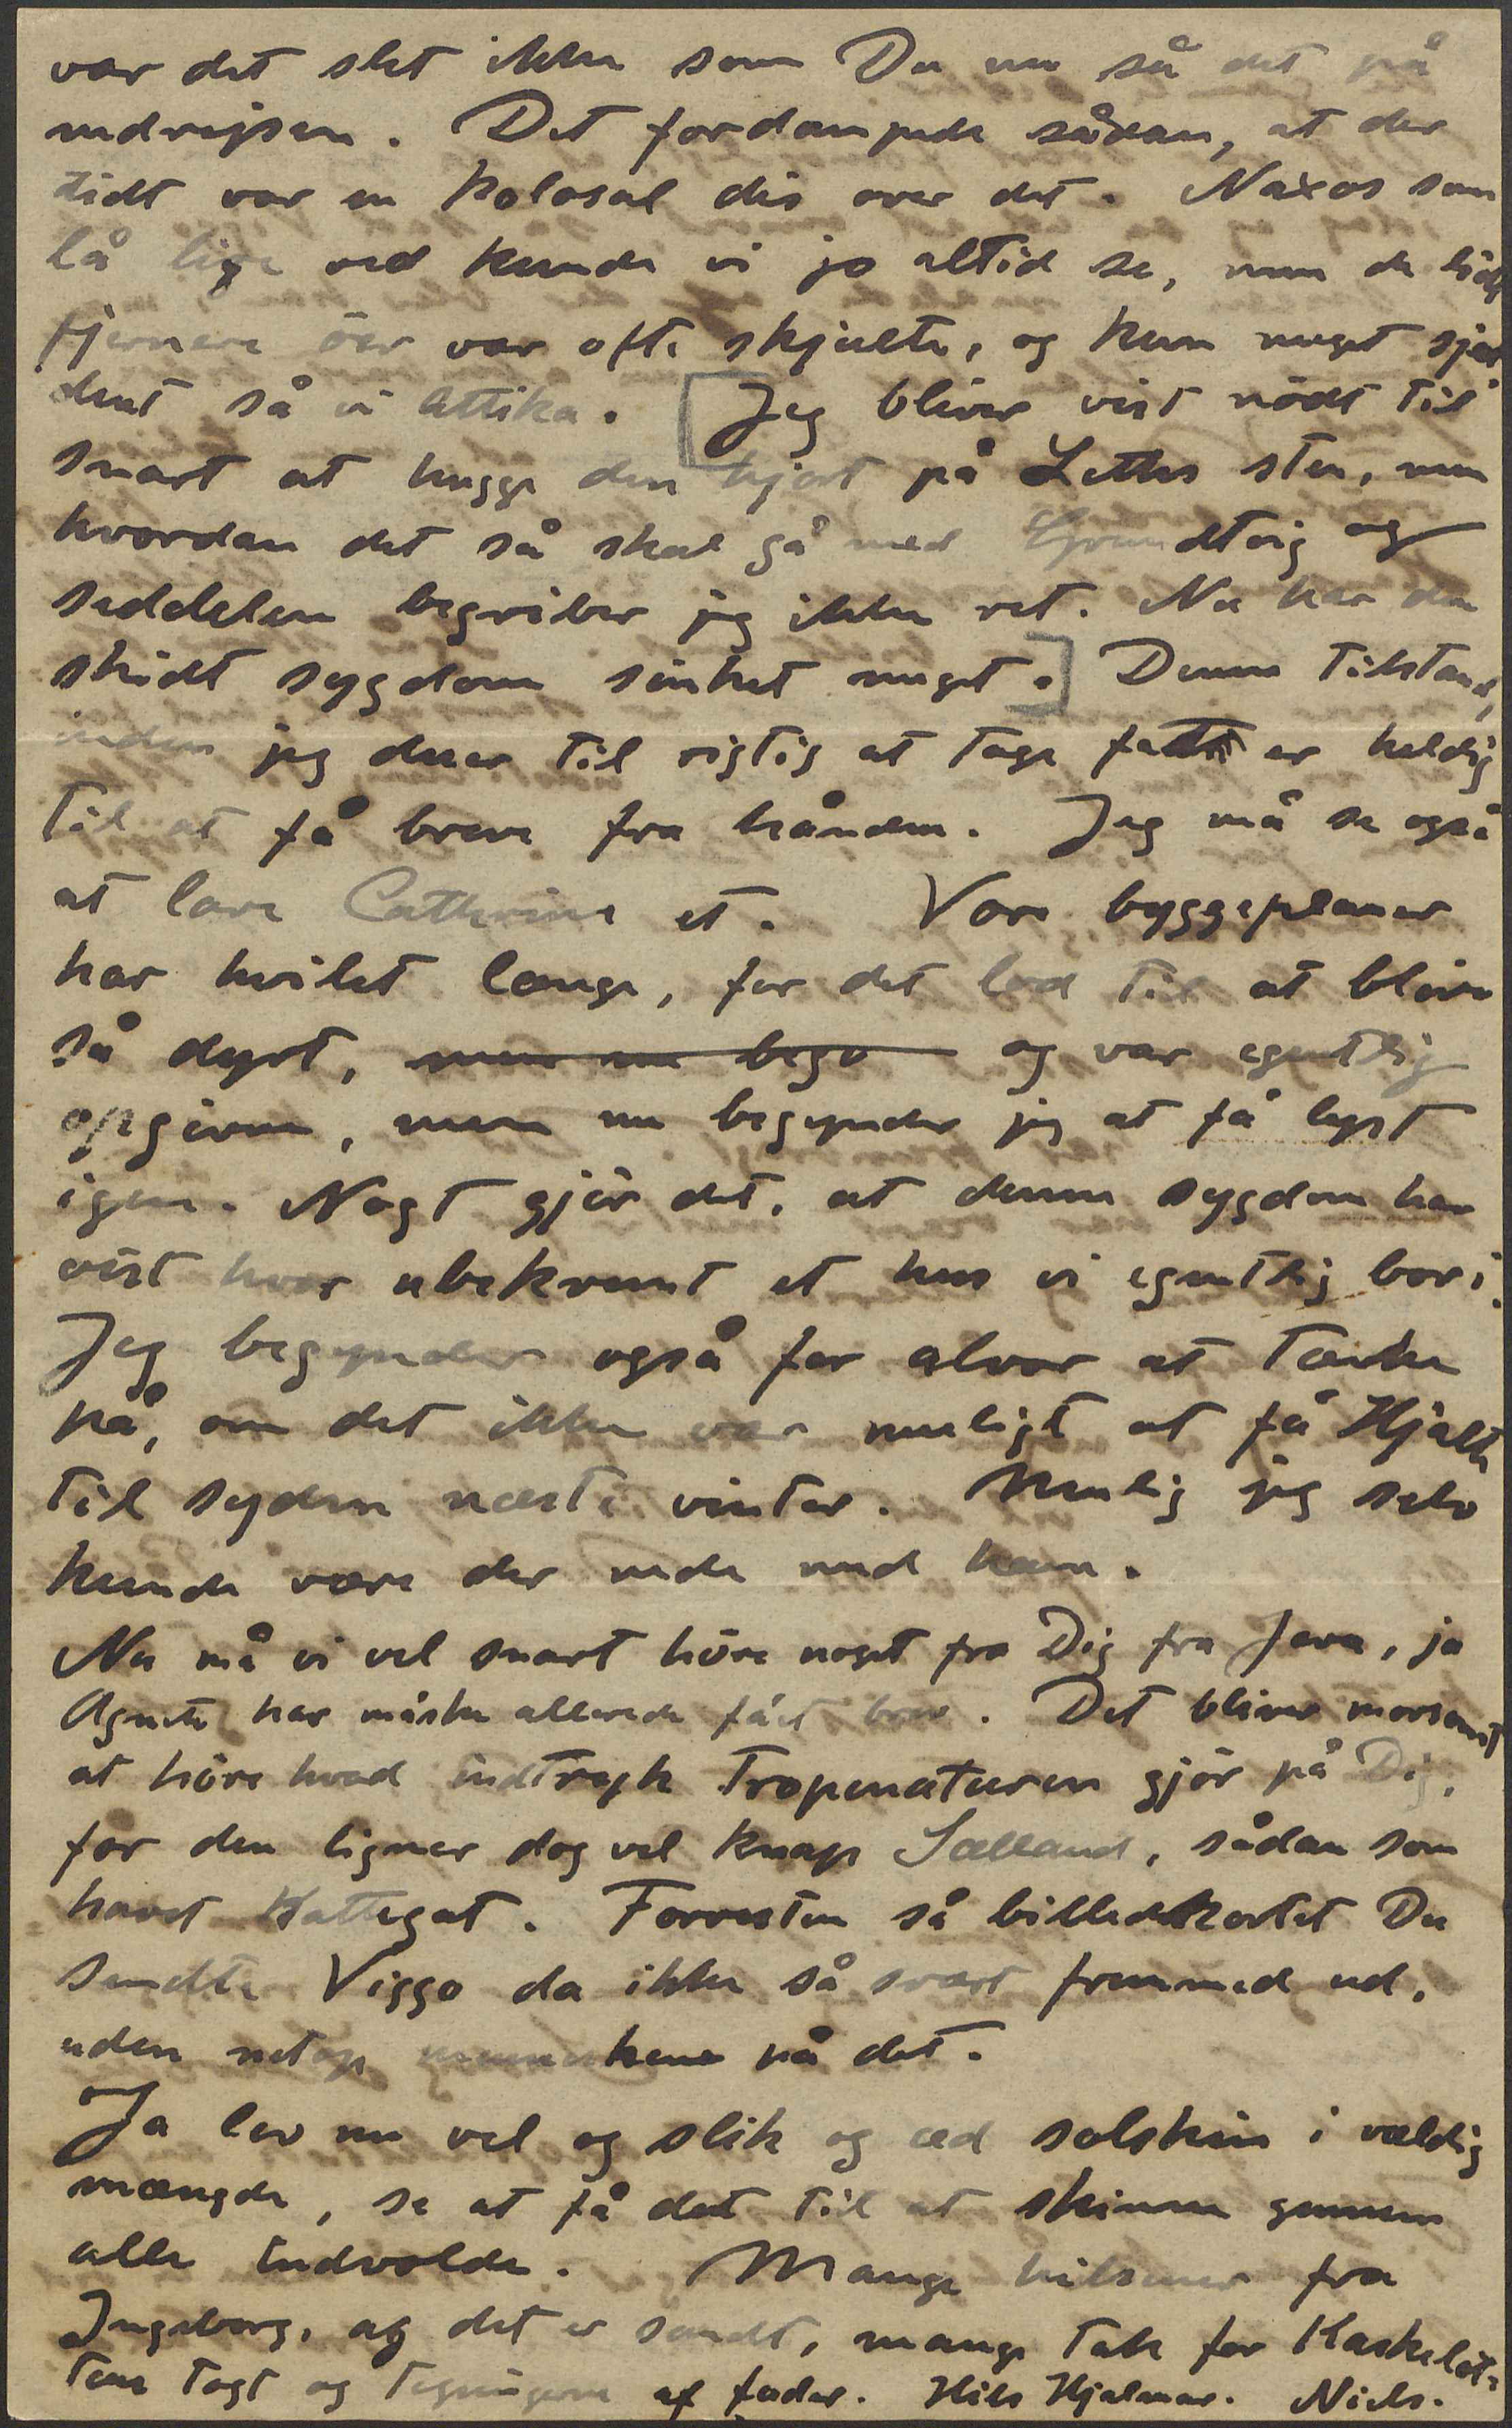 var det slet ikke som Du nu så det på
nedrejsen. Det fordampede sådan, at der
tidt var en kolosal dis over det. Naxos som
lå lige ved kunde vi jo altid se, men de lidt
fjernere öer var ofte skjulte, og kun meget sjæl
dent så vi Attika. [Jeg bliver vist nödt til
snart at hugge den hjort på Leths sten, men
hvordan det så skal gå med Grundtvig og
seddelen begriber jeg ikke ret. Nu har den
skidt sygdom sinket meget.] Denne tilstand,
inden jeg duer til rigtig at tage fatt er heldig
til at få breve fra hånden. Jeg må se også
at lave Cathrine et. Vore byggeplaner
har hvilet længe, for det lod til at blive
så dyrt, men nu begy og var egentlig
opgivne, men nu begynder jeg at få lyst
igen. Nogt gjör det, at denne sygdom har
vist hvor ubekvemt et hus vi egentlig bor i.
Jeg begynder også for alvor at tænke
på, om det ikke var muligt at få Hjalte
til syden næste vinter. Mulig jeg selv
kunde være der nede med ham.
Nu må vi vel snart höre noget fra Dig fra Java, ja
Agnete har måske allerede fået brev. Det bliver morsomt
at höre hvad indtryk Tropenaturen gjör på Dig,
for den ligner dog vel knap Sælland, sådan som
havet Kattegat. Forresten så billedkortet Du
sendte Viggo da ikke så svært fremmed ud,
uden netop menneskene på det.
Ja lev nu vel og slik og æd solskin i vældig
mængde, se at få det til at skinne gennem
alle Indvolde. Mange hilsener fra
Ingeborg, og det er sandt, mange tak for Kaskelot-
tens Togt og tegningerne af fader. Hils Hjalmar. Niels.